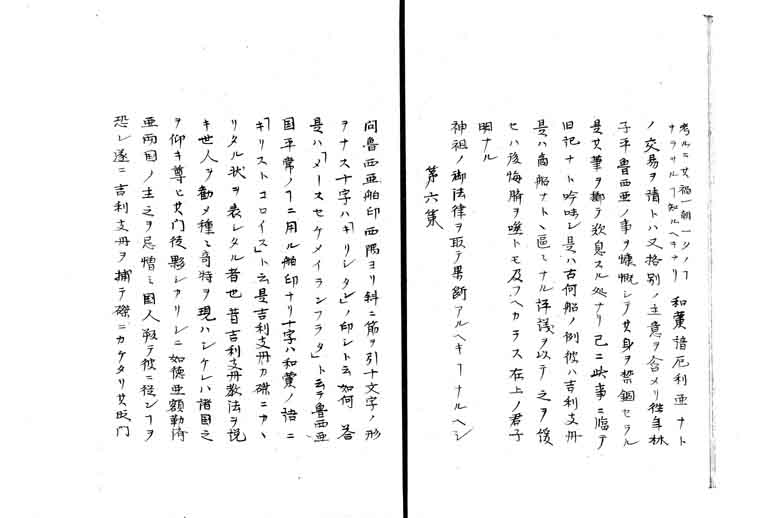 考ルニ其禍一朝一夕ノヿ
ヲラサルヿ知ルヘキナリ
和蘭諳厄利亜ナト
ノ交易ヲ請トハ又格別ノ主意ヲ含メリ徃年林
子平魯西亜ノ事ヲ慷慨シテ其身ヲ禁錮セラル
是其筆ヲ擲テ歎息スル処ナリ已ニ此事ニ臨テ
旧記ナト吟味シ是ハ古何船ノ例彼ハ吉利支丹
是ハ商船ナト区々ナル評議ヲ以テ之ヲ緩
セハ後悔臍ヲ噬トモ及フヘカラス在上ノ君子
明ナル
神祖ノ御法律ヲ取テ果断アルヘキヿナルヘシ
第六集
問魯西亜舶印西隅ヨリ斜ニ筋ヲ引十文字ノ形
ヲナス十字ハ「キリシタン」ノ印シト云如何　答
是ハ「メースセケメイランフラタ」ト云テ魯西亜
国平常ノヿニ用ル舶印ナリ十字ハ和蘭ノ語ニ
「キリストコロイス」ト云是吉利支丹カ磔ニカヽ
リタル状ヲ表レタル者也昔吉利支丹教法ヲ説
キ世人ヲ勧メ種々奇特ヲ現ハシケレハ諸国之
ヲ仰キ尊ヒ其門従夥シカリシニ如徳亜額勒済
亜両国ノ主之ヲ忌憎ミ国人叛テ彼ニ従シヿヲ
恐レ遂ニ吉利支丹ヲ捕テ磔ニカケタリ其時門